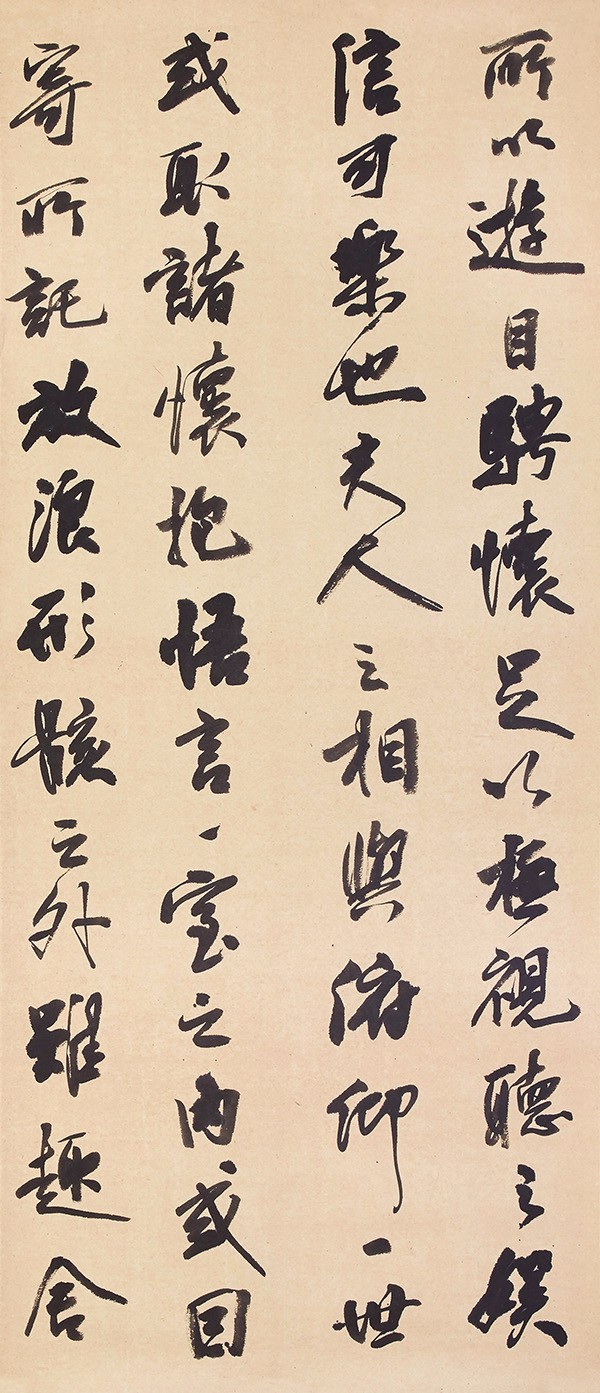 所以遊目騁懷足以極視聽之娛
信可樂也夫人之相與俯仰一世
或取諸懷抱悟言一室之內或因
寄所託放浪形骸之外雖趣舍